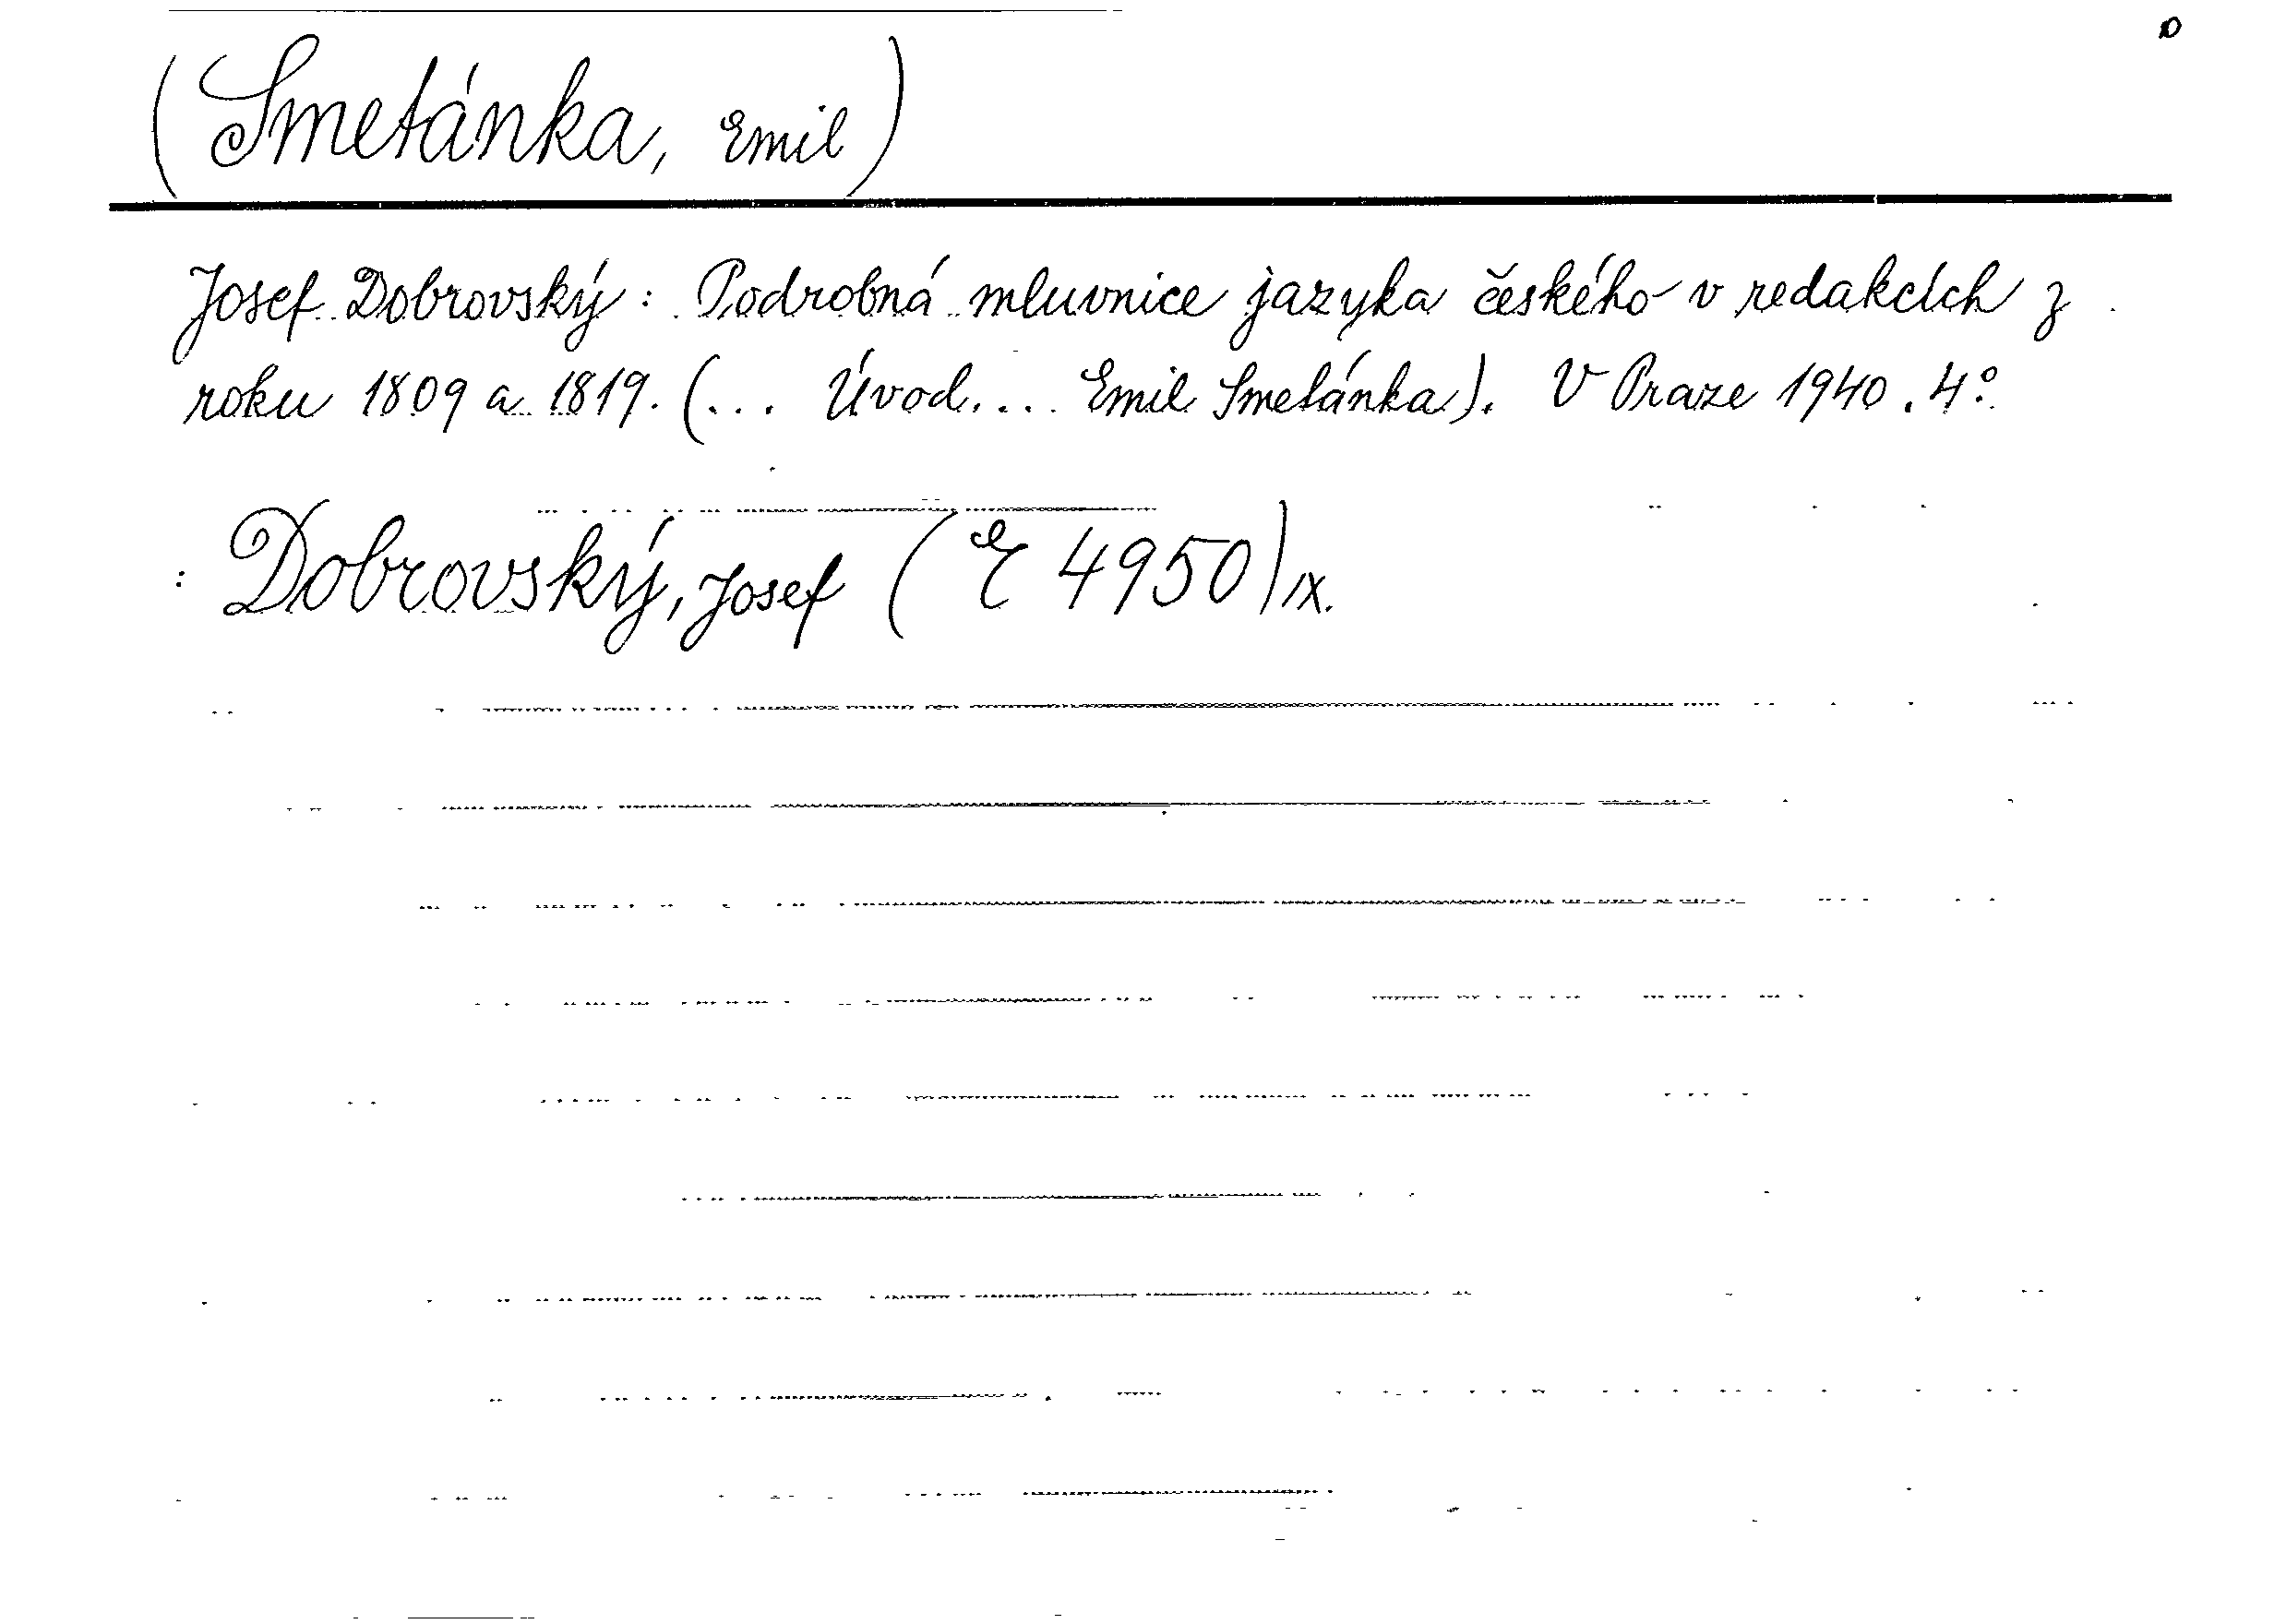 (Smetánka, Emil)
Josef Dobrovský: Podrobná mluvnice jazyka českého v redakcích z
roku 1809 a 1819. (... Úvod.... Emil Smetánka). V Praze 1940. 4°.
: Dobrovský, Josef (E 4950) IX.